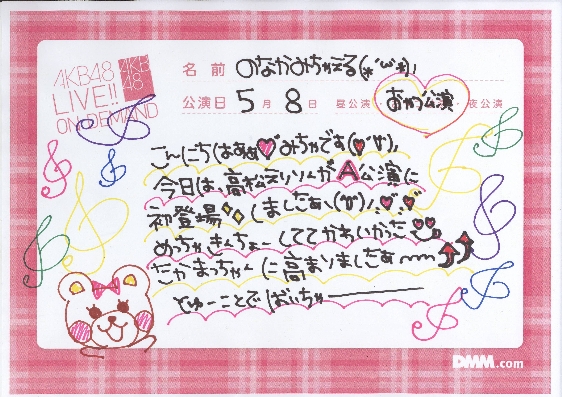 AKB48
LIVE!!
ON DEMAND
AKB48
名前 のなかみちゃえる(*'ω'*)
公演日 5月8日 昼公演・おやつ公演・夜公演
こんにちはあぁ♥みちゃです
今日は、高松えりソンがA公演に
初登場 しましたあヽ(^o^)ﾉ
めっちゃきんちょーしててかわいかった
たかまっちゃんに高まりましたあ〰
とゆーことでばいちゃー
DMM.com